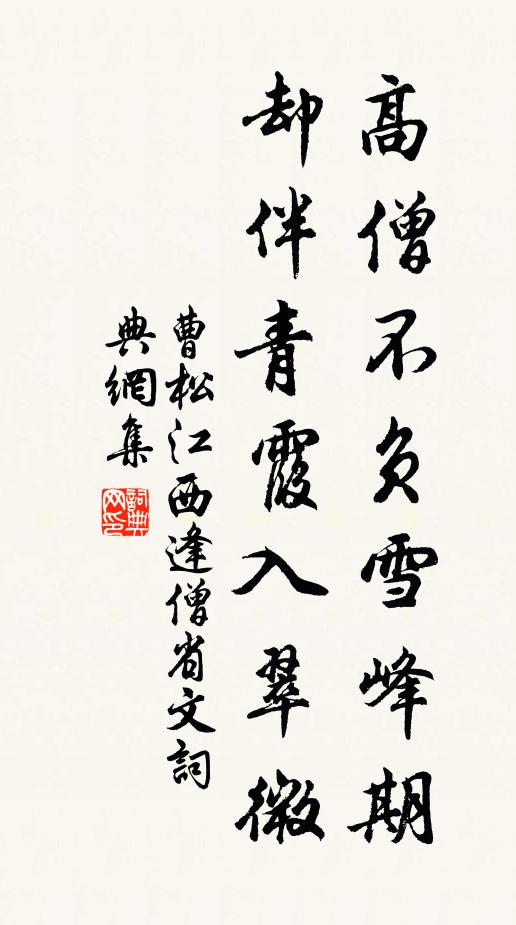 高僧不負雪峰期
却伴青霞入翠微
曹松江西逢僧省文詞
典網集
詞典网印